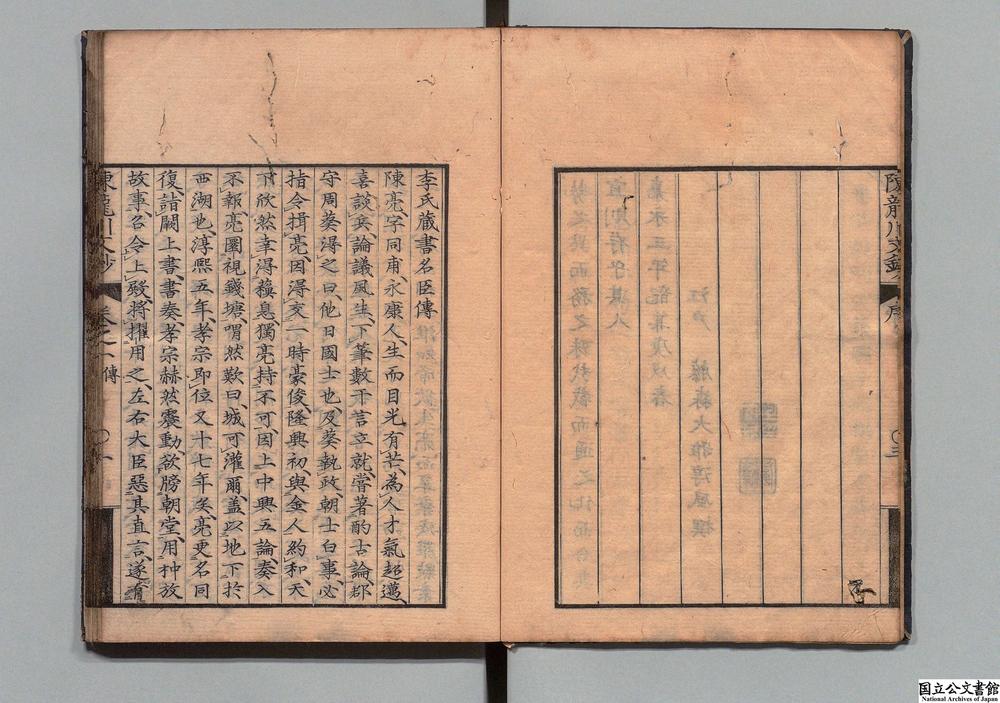 陳龍川文鈔 序 ○三
李氏藏書名臣傳
陳亮字同甫永康人生而目光有芒為人才氣超邁
喜談兵論議風生下筆數千言立就嘗著酌古論郡
守周葵得之曰他日國士也及葵執政朝士白事必
指令揖亮因得交一時豪俊隆興初與金人約和天
下欣然幸得蘓息獨亮持不可因上中興五論奏入
不報亮圜視錢塘喟然歎曰城可灌爾盖以地下於
西湖也淳熙五年孝宗即位又十七年矣亮更名同
復詣闕上書書奏孝宗赫然震動欲牓朝堂用种放
故事召令上殿將擢用之左右大臣惡其直言遂有
陳龍川文鈔 卷之一 傳 ○一
国立公文書館
National Archives of Japan